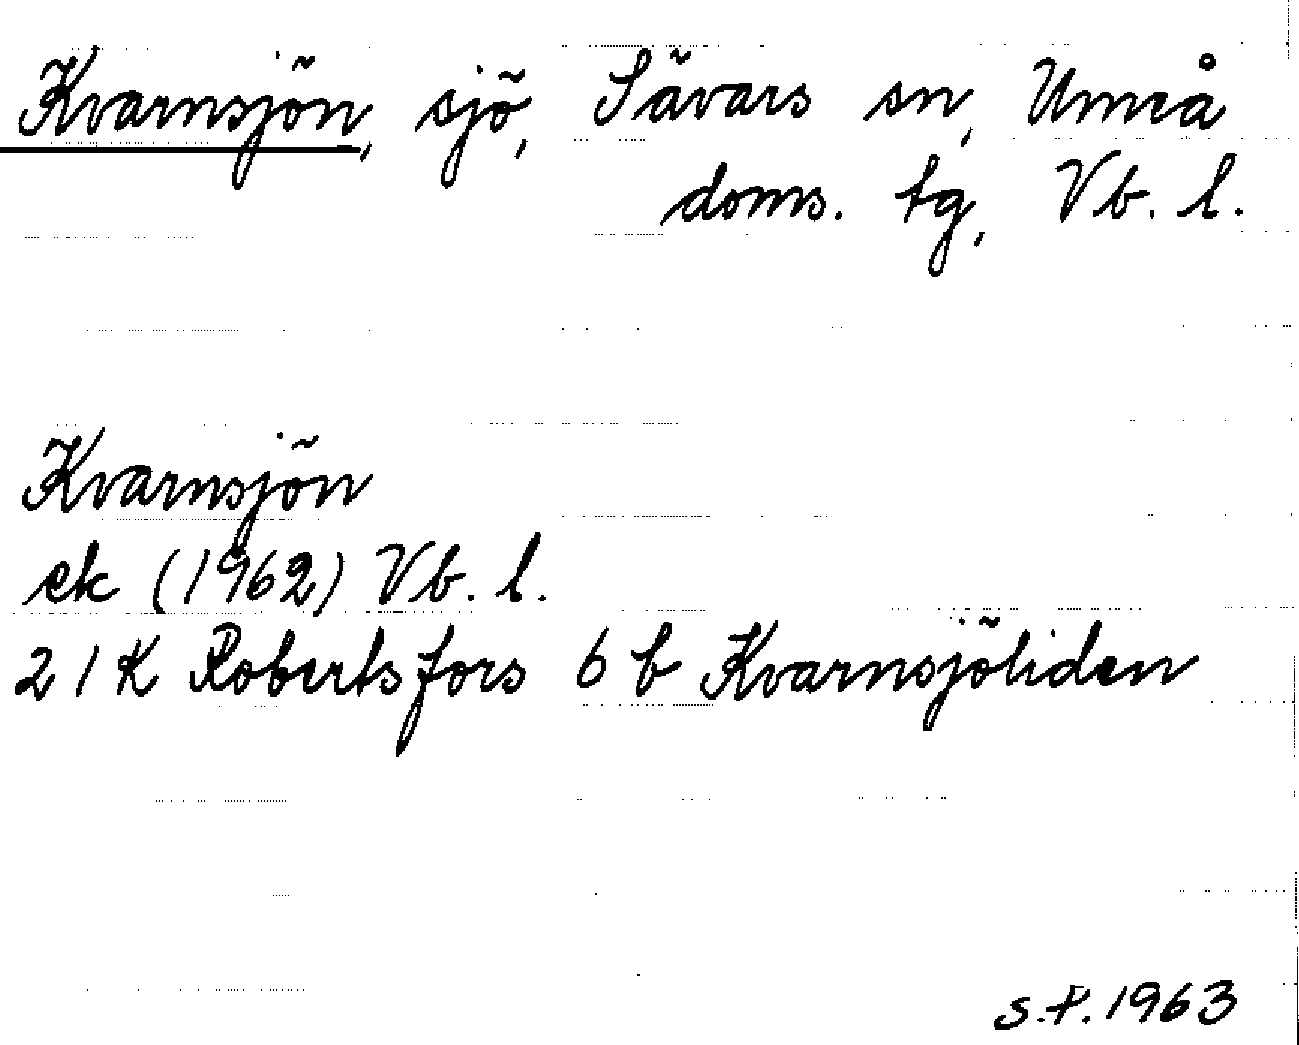 Kvarnsjön, sjö, Sävars sn, Umeå
doms. tg, Vb. l.
Kvarnsjön
ek (1962) Vb. l.
21K Robertsfors 6 b Kvarnsjöliden
S.P. 1963